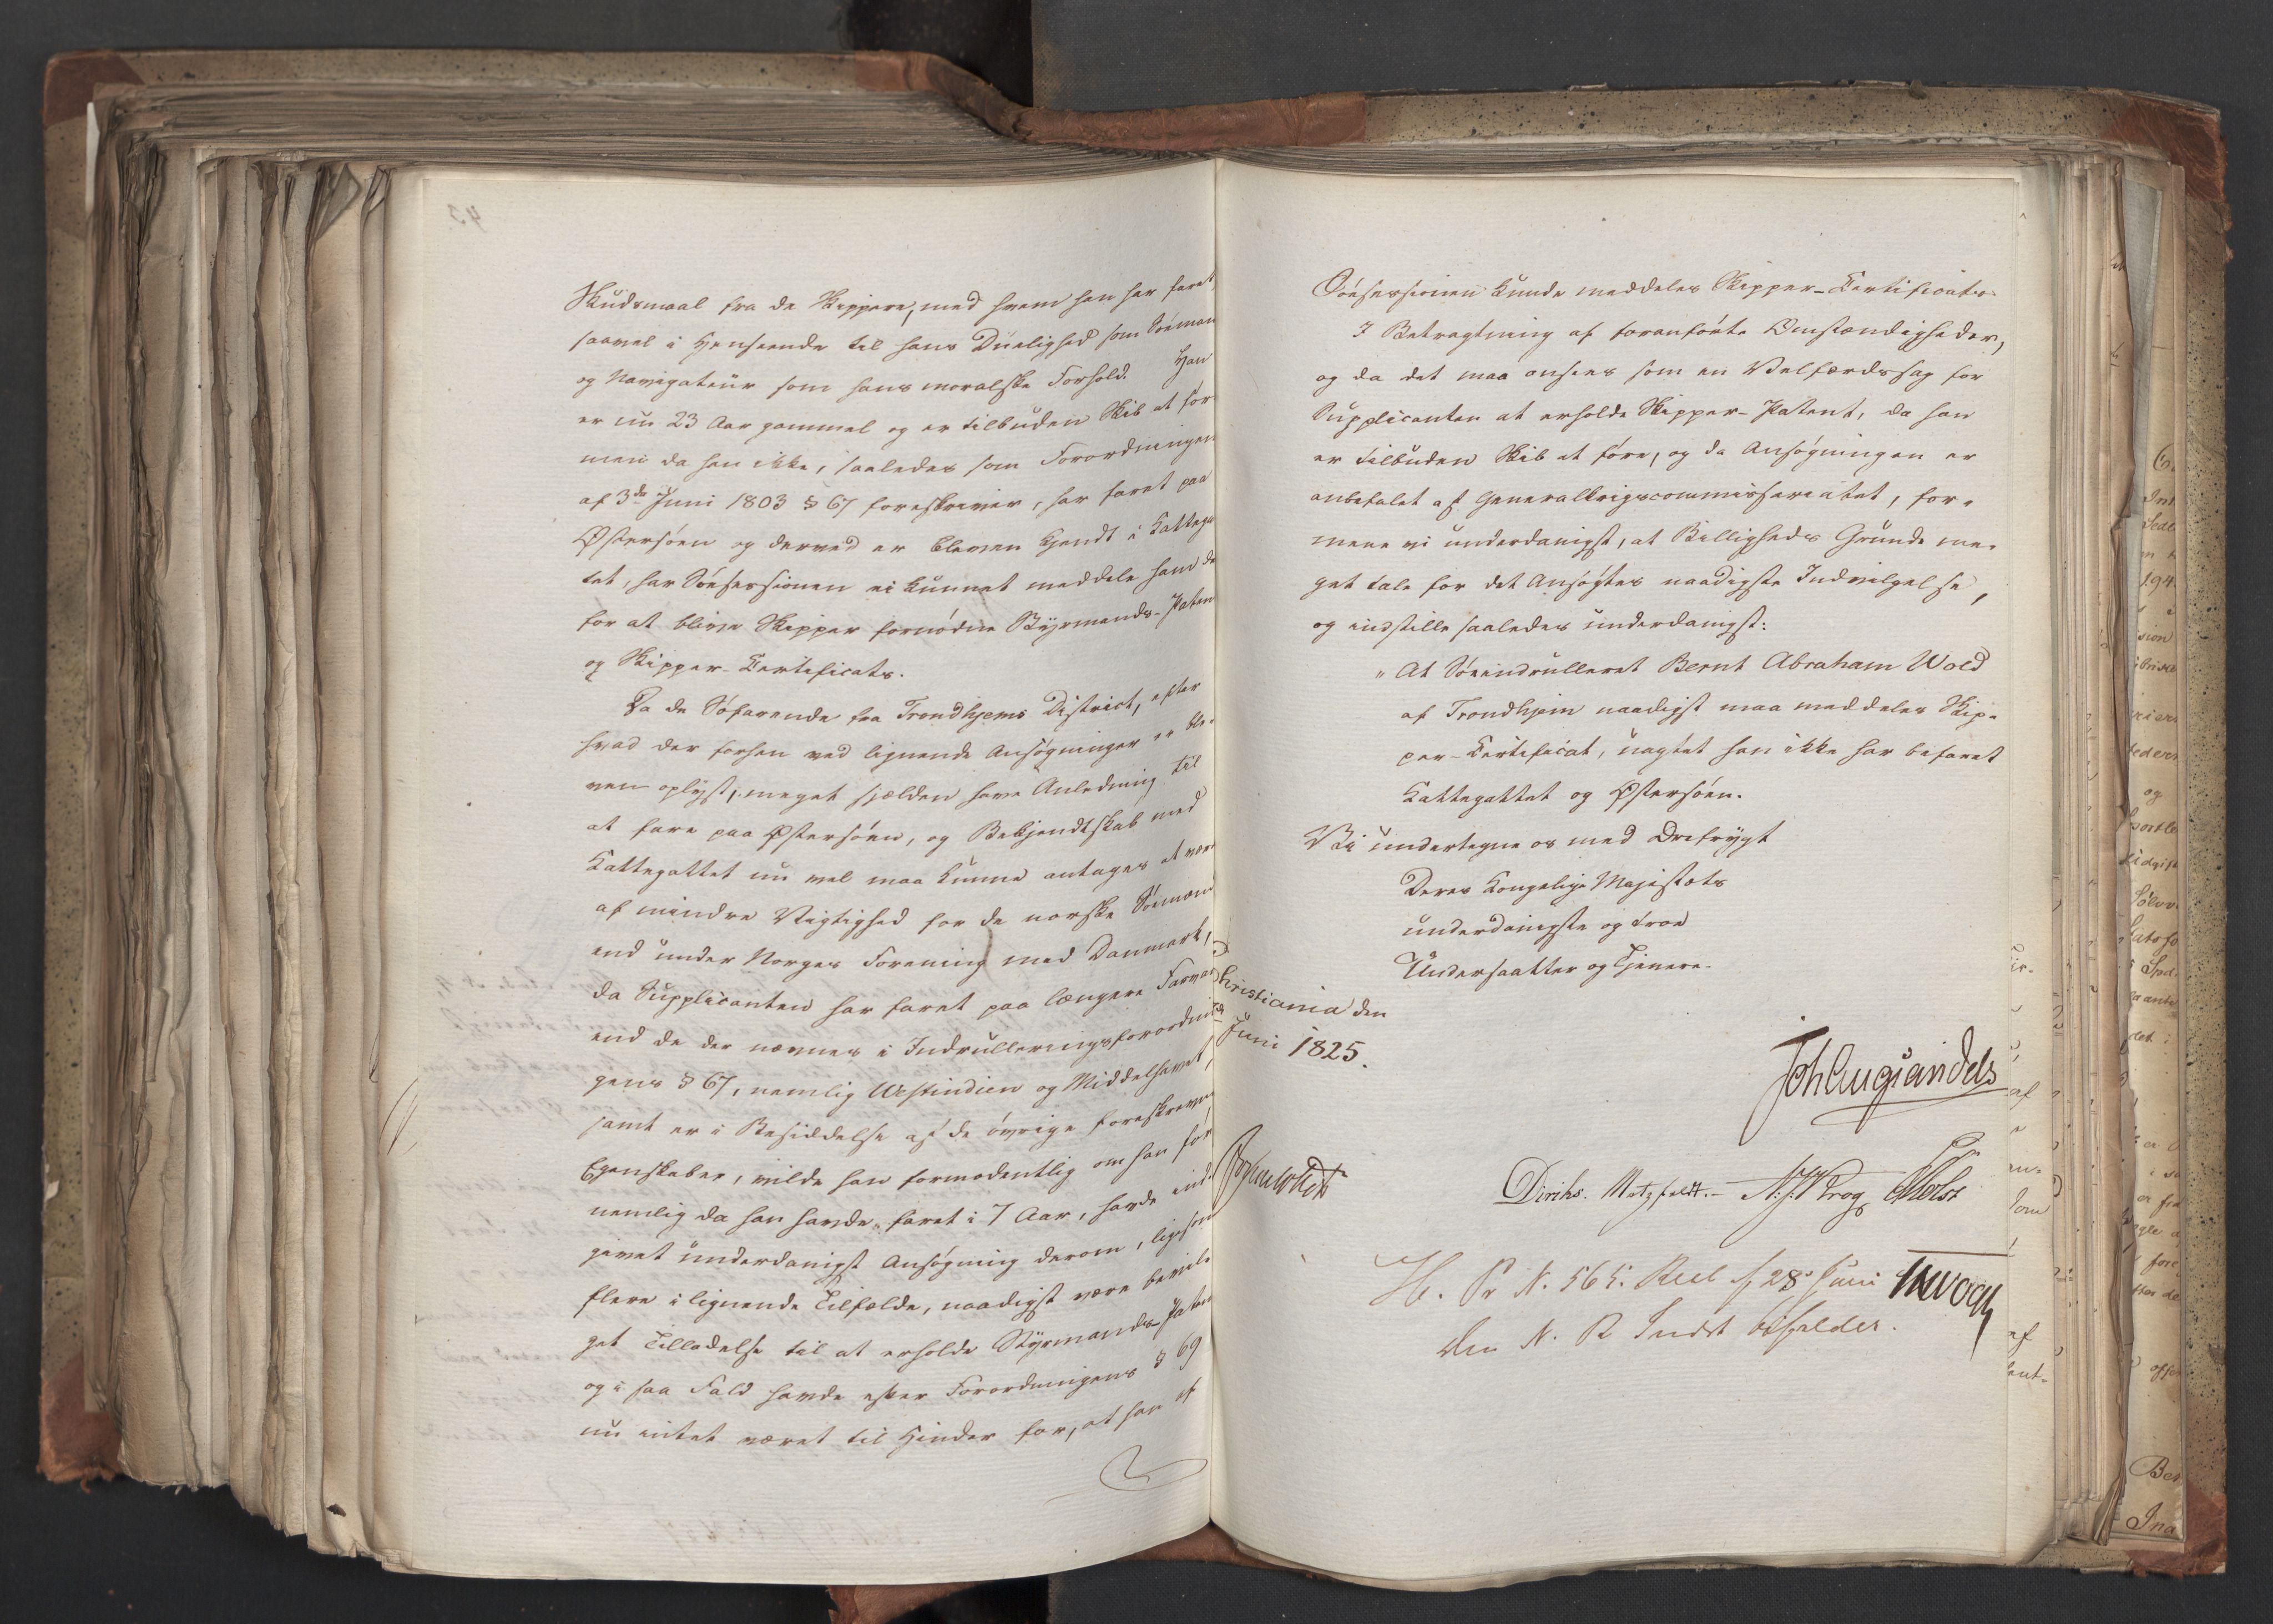 Skudsmaal fra de Skippere, med hvem han har faret,
saavel i Henseende til hans Duelighed som Söeman
og Navigateur som hans moralske Forhold. Han
er nu 23 Aar gammel og er tilbuden Skib at før
men da han ikke, saaledes som Forordningen
af 3die Juni 1803 § 67 foreskriver, har faret paa
Østersöen og derved er bleven kjendt i Kattega
tet, har Söesessionen ei kunnet meddele ham de
for at blive Skipper fornödne Styrmands-Paten
og Skipper-Certificats.
Da de Söfarende fra Trondhjems District, efter
hvad der forhen ved lignende Ansögninger er ble-
ven oplyst, meget sjælden have Anledning til
at fare paa Østersöen, og Bekjendtskab med
Kattegattet nu vel maa kunne antages at være
af mindre Vigtighed for de norske Sömænd
end under Norges Forening med Danmark,
da Supplicanten har faret paa længere Farvan
end de der nævnes i Indrulleringsforordnin
gens § 67, nemlig Westindien og Middelhavet,
samt er i Besiddelse af de övrige foreskrevne
Egenskaber, vilde han formodentlig om han før,
nemlig da han havde faret i 7 Aar, havde ind-
givet underdanigst Ansögning derom, ligesom
flere i lignende Tilfælde, naadigst være bevil-
get Tilladelse til at erholde Styrmands-Paten
og i saa Fald havde efter Forordningens § 69
nu intet været til Hinder for, at han af
Söesessionen kunde meddeles Skipper-Certificats
I Betragtning af foranförte Omstændigheder,
og da det maa ansees som en Velfærdssag for
Supplicanten at erholde Skipper-Patent, da han
er tilbuden Skib at före, og da Ansögningen er
anbefalet af Generalkrigscommissariatet, for-
mene vi underdanigst, at Billigheds Grunde me-
get tale for det Ansögtes naadigste Indvilgelse,
og indstille saaledes underdanigst:
"At Söeindrulleret Bernt Abraham Wold
af Trondhjem naadigst maa meddeles Skip-
per-Certificat, uagtet han ikke har befaret
Kattegattet og Østersöen.
Vi undertegne os med Ærefrygt
Deres Kongelige Majestæts
underdanigste og troe
Undersaatter og Tjenere.
Christiania den
Juni 1825.
Joh Aug Sandels
Diriks. Motzfeldt. N. J. W. Krog Holst
P. N. 565. Res. f 28 Juni
den N. R Indst bifaldes.